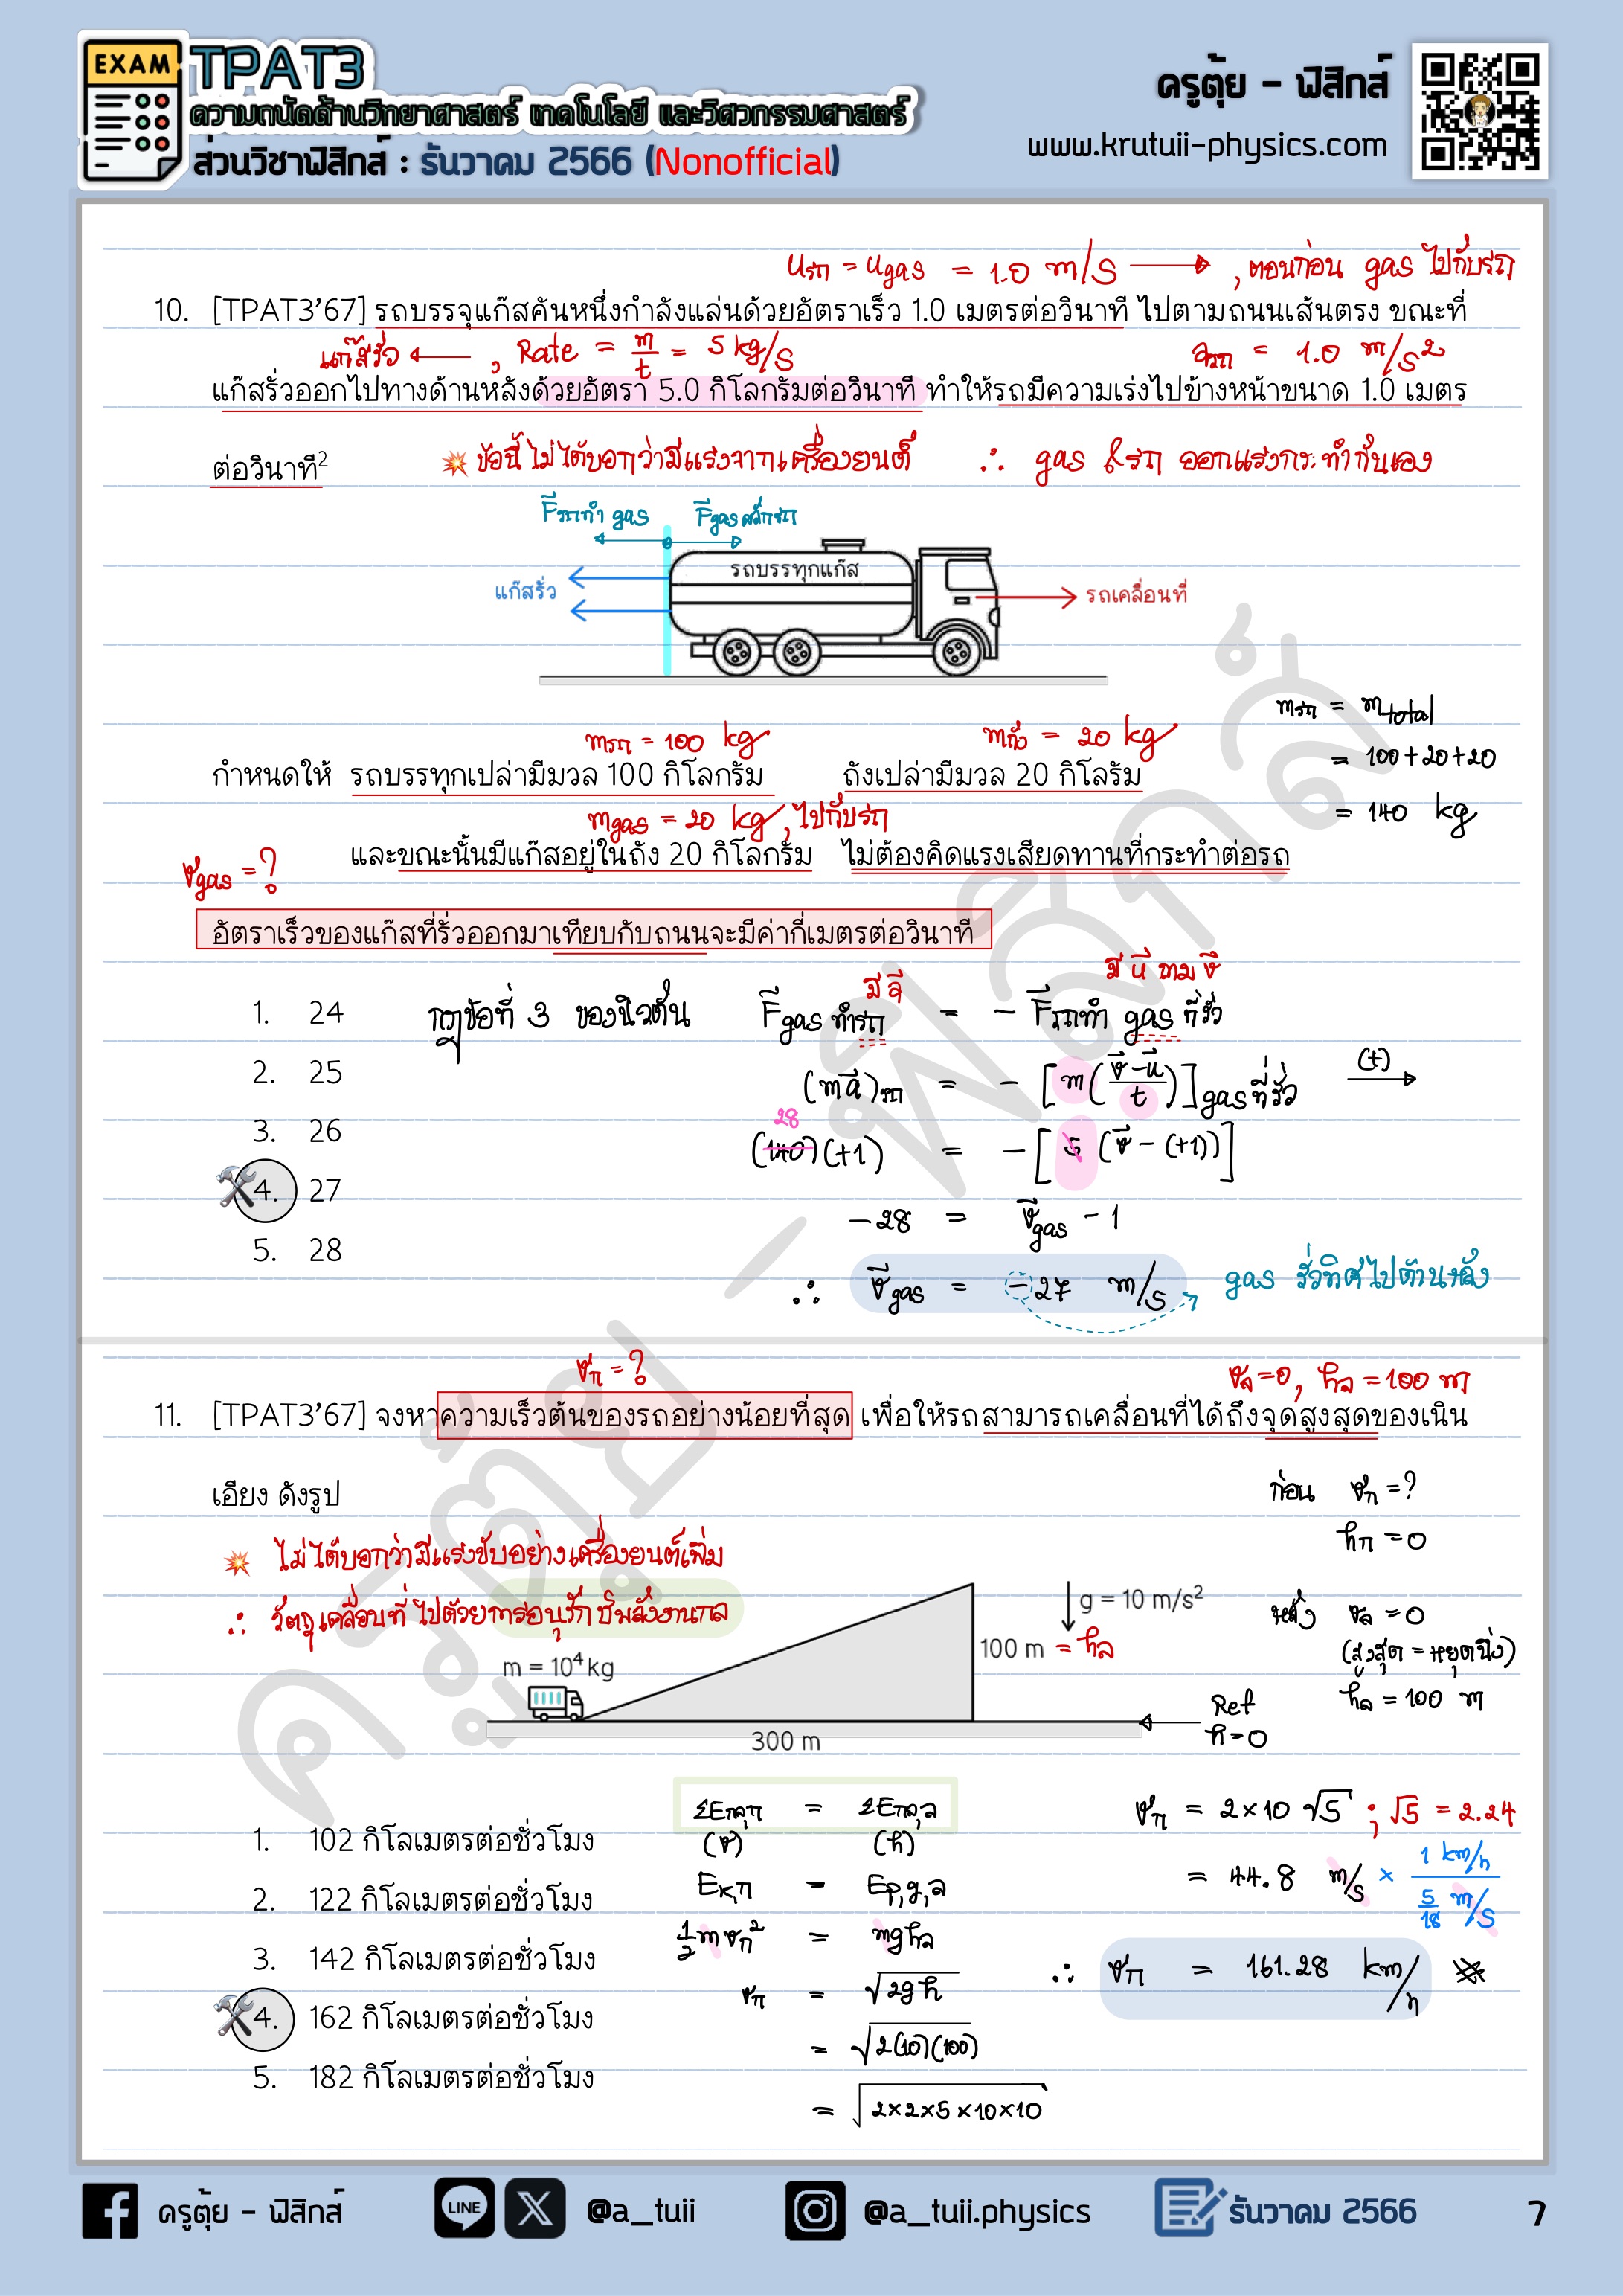 EXAM
TPAT3
ความถนัดด้านวิทยาศาสตร์ เทคโนโลยี และวิศวกรรมศาสตร์
ส่วนวิชาฟิสิกส์ : ธันวาคม 2566 (Nonofficial)
ครูตุ้ย - ฟิสิกส์
www.krutuii-physics.com
uรถ = ugas = 1.0 m/s → , ตอนก่อน gas ไปกับรถ
10. [TPAT3'67] รถบรรจุแก๊สคันหนึ่งกำลังแล่นด้วยอัตราเร็ว 1.0 เมตรต่อวินาที ไปตามถนนเส้นตรง ขณะที่
แก๊สรั่ว ← , Rate = m/t = 5 kg/s
aรถ = 1.0 m/s²
แก๊สรั่วออกไปทางด้านหลังด้วยอัตรา 5.0 กิโลกรัมต่อวินาที ทำให้รถมีความเร่งไปข้างหน้าขนาด 1.0 เมตร
ต่อวินาที²
ข้อนี้ไม่ได้บอกว่ามีแรงจากเครื่องยนต์ ∴ gas & รถ ออกแรงกระทำกันเอง
Fรถทำ gas
Fgas ผลักรถ
รถบรรทุกแก๊ส
แก๊สรั่ว
รถเคลื่อนที่
mรถ = mtotal
= 100+20+20
= 140 kg
mรถ = 100 kg
mถัง = 20 kg
กำหนดให้ รถบรรทุกเปล่ามีมวล 100 กิโลกรัม ถังเปล่ามีมวล 20 กิโลรัม
mgas = 20 kg, ไปกับรถ
และขณะนั้นมีแก๊สอยู่ในถัง 20 กิโลกรัม ไม่ต้องคิดแรงเสียดทานที่กระทำต่อรถ
vgas = ?
อัตราเร็วของแก๊สที่รั่วออกมาเทียบกับถนนจะมีค่ากี่เมตรต่อวินาที
1. 24
2. 25
3. 26
4. 27
5. 28
มี a
มี u ตาม v
กฎข้อที่ 3 ของนิวตัน Fgas ทำรถ = - Fรถทำ gas ที่รั่ว
(ma)รถ = - [m((v-u)/t)]gas ที่รั่ว
(+) →
28
(140)(+1) = - [5 (v - (+1))]
-28 = vgas - 1
∴ vgas = -27 m/s
gas รั่วทิศไปด้านหลัง
vก = ?
vล = 0, hล = 100 m
11. [TPAT3'67] จงหาความเร็วต้นของรถอย่างน้อยที่สุด เพื่อให้รถสามารถเคลื่อนที่ได้ถึงจุดสูงสุดของเนิน
เอียง ดังรูป
ไม่ได้บอกว่ามีแรงขับอย่างเครื่องยนต์เพิ่ม
∴ วัตถุเคลื่อนที่ไปด้วยการอนุรักษ์พลังงานกล
ก่อน vก = ?
hก = 0
หลัง vล = 0
(สูงสุด = หยุดนิ่ง)
hล = 100 m
g = 10 m/s²
100 m = hล
m = 10⁴ kg
300 m
Ref
h = 0
1. 102 กิโลเมตรต่อชั่วโมง
2. 122 กิโลเมตรต่อชั่วโมง
3. 142 กิโลเมตรต่อชั่วโมง
4. 162 กิโลเมตรต่อชั่วโมง
5. 182 กิโลเมตรต่อชั่วโมง
ΣEกล,ก = ΣEกล,ล
(v) (h)
Ek,ก = Ep,g,ล
1/2 mvก² = mghล
vก = √2gh
= √2(10)(100)
= √2×2×5×10×10
vก = 2×10 √5 ; √5 = 2.24
= 44.8 m/s × 1 km/h / (5/18 m/s)
∴ vก = 161.28 km/h
ครูตุ้ย - ฟิสิกส์
ครูตุ้ย - ฟิสิกส์
LINE
@a_tuii
@a_tuii.physics
ธันวาคม 2566
7